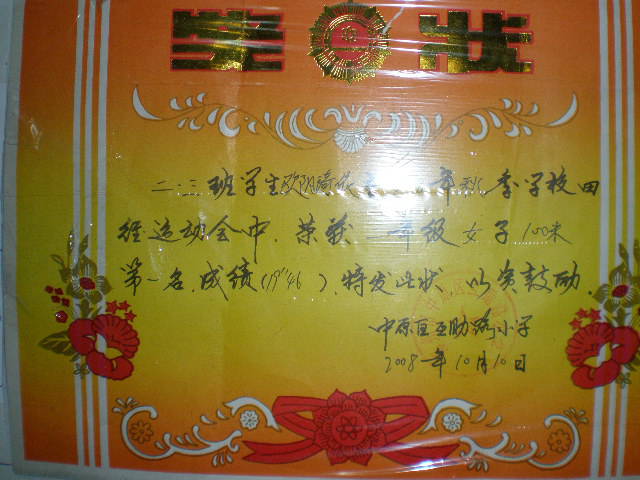 奖状
二.三班学生欧阳 年秋季学校田
径运动会中,荣获二年级女子100米
第一名,成绩(19"46),特发此状 以资鼓励.
中原区互助路小学
2008年10月10日